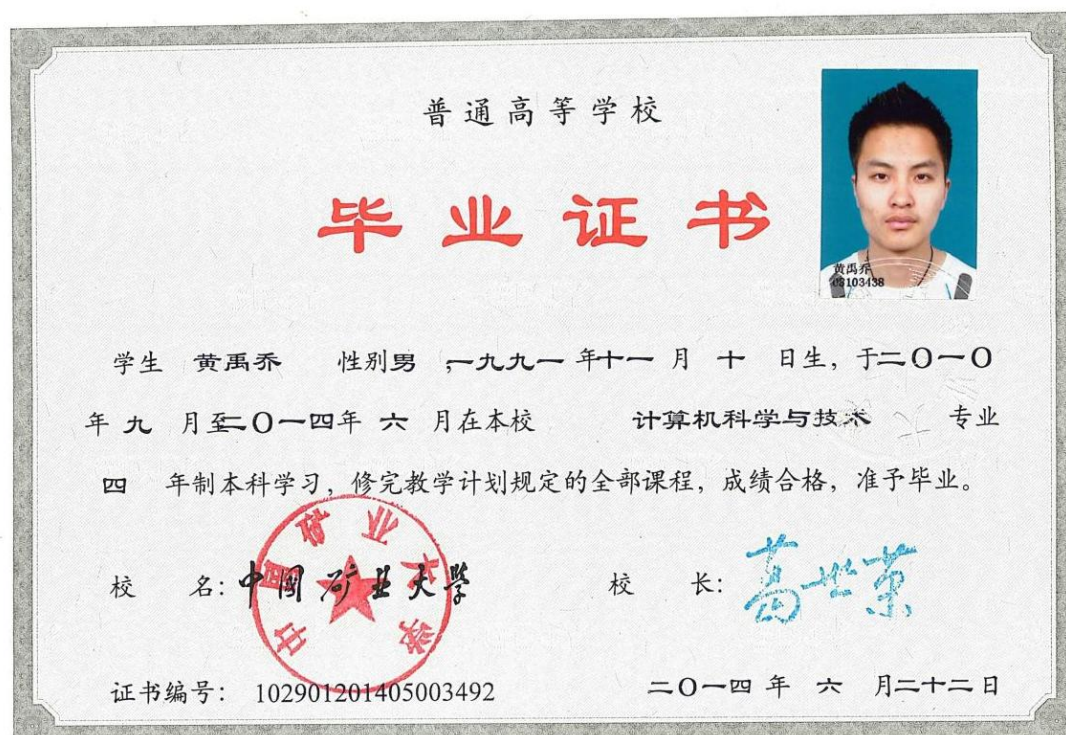 普通高等学校
毕业证书
黄禹乔
08103438
学生 黄禹乔 性别男 ,一九九一 年十一 月 十 日生, 于二〇一〇
年 九 月至二〇一四年 六 月在本校 计算机科学与技术 专业
四 年制本科学习, 修完教学计划规定的全部课程, 成绩合格, 准予毕业。
校 名: 中国矿业大学 校 长: 葛世荣
中国矿业大学
证书编号: 102901201405003492 二〇一四 年 六 月二十二日